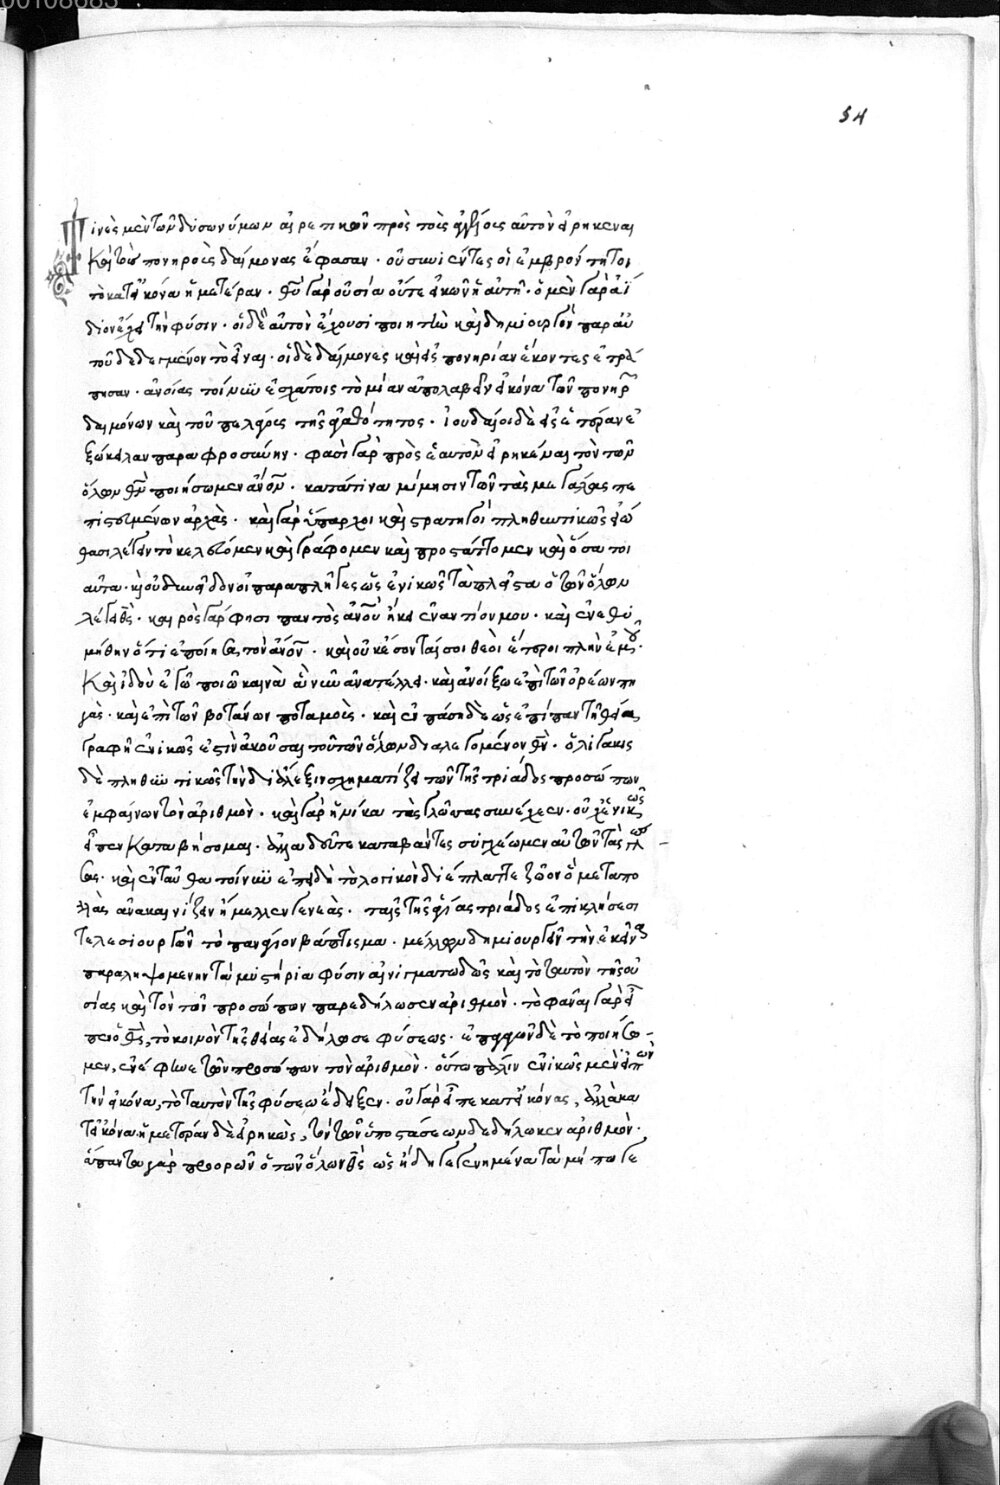 54
Τινὲς μὲν τῶν δυσωνύμων αἱρετικῶν πρὸς τοὺς ἀγγέλους αὐτὸν εἰρηκέναι
καὶ τοὺς πονηροὺς δαίμονας ἔφασαν· οὐ συνιέντες οἱ ἐμβρόντητοι
τὸ κατ' εἰκόνα ἡμετέραν· θυ γὰρ οὐσία οὔτε εἰκὼν ἡ αὐτή· ὁ μὲν γὰρ ἀΐ
διον ἔχει τὴν φύσιν· οἱ δὲ αὐτὸν ἔχουσι ποιητὴν καὶ δημιουργὸν παρ' αὐ
τοῦ δεδεγμένοι τὸ εἶναι· οἱ δὲ δαίμονες καὶ εἰς πονηρίαν ἑκόντες ἐτρά
πησαν· ἀνοίας τοίνυν ἐσχάτοις τὸ μίαν ἀπολαβεῖν εἰκόνα τῶν πονηρ
δαιμόνων καὶ τοῦ πελάγους τῆς ἀγαθότητος· ἰουδαῖοι δὲ εἰς ἑτέραν ἐ
ξώκειλαν παραφροσύνην· φασὶ γὰρ πρὸς ἑαυτὸν εἰρηκέναι τὸν τῶν
ὅλων θν ποιήσωμεν ἄνον· κατά τινα μίμησιν τῶν τὰς μεγάλας πε
πιστευμένων ἀρχὰς· καὶ γὰρ ὕπαρχοι καὶ στρατηγοὶ πληθυντικῶς εἰώ
θασι λέγειν τὸ κελεύομεν καὶ γράφομεν καὶ προστάττομεν καὶ ὅσα τοι
αῦτα· οἱ παραπλῆγες ὡς ἑνικῶς τὰ πλεῖστα ὁ τῶν ὅλων
λέγει θς· καιρὸς γάρ φησι παντὸς ἀνου ἥκει ἐναντίον μου· καὶ ἐνεθυ
μήθην ὅτι ἐποίησα τὸν ἄνον· καὶ οὐκ ἔσονταί σοι θεοὶ ἕτεροι πλὴν ἐμοῦ·
Καὶ ἰδοὺ ἐγὼ ποιῶ καινὰ ἃ νῦν ἀνατέλλει· καὶ ἀνοίξω ἐπὶ τῶν ὀρέων πη
γὰς· καὶ ἐπὶ τῶν βοτάνων ποταμοὺς· καὶ ἐν πάσῃ δὲ ὡς ἐπίπαν τῇ θείᾳ
γραφῇ ἑνικῶς ἐστὶν ἀκοῦσαι τοῦ τῶν ὅλων διαλεγομένου θυ· ὀλιγάκις
δὲ πληθυντικῶς τὴν διάλεξιν σχηματίζει τῶν τῆς τριάδος προσώπων
ἐμφαίνων τὸν ἀριθμὸν· καὶ γὰρ ἡνίκα τὰς γλώττας συνέχεεν· οὐχ ἑνικῶς
εἶπεν καταβήσομαι· ἀλλὰ δεῦτε καταβάντες συγχέωμεν αὐτῶν τὰς γλώσ
σας· καὶ ἐνταῦθα τοίνυν ἐπειδὴ τὸ λογικὸν διέπλαττε ζῷον ὃ μετὰ πο
λλὰς ἀνακαινίζειν ἤμελλεν γενεὰς· ταῖς τῆς ἁγίας τριάδος ἐπικλήσεσι
τελεσιουργῶν τὸ πανάγιον βάπτισμα· μέλλων δημιουργεῖν τὴν ἐκεῖνα
παραληψομένην τὰ μυστήρια φύσιν αἰνιγματωδῶς καὶ τὸ ταυτὸν τῆς οὐ
σίας καὶ τὸν τῶν προσώπων παρεδήλωσεν ἀριθμὸν· τὸ φάναι γὰρ εἶ
πεν ὁ θς, τὸ κοινὸν τῆς θείας ἐδήλωσε φύσεως· ἐπαγαγὼν δὲ τὸ ποιήσω
μεν, ἐνέφηνε τῶν προσώπων τὸν ἀριθμὸν· οὕτω πάλιν ἑνικῶς μὲν εἰπὼν
τὴν εἰκόνα, τὸ ταυτὸν τῆς φύσεως ἔδειξεν· οὐ γὰρ εἶπε κατ' εἰκόνας, ἀλλὰ κα
τ' εἰκόνα· ἡμετέραν δὲ εἰρηκὼς, τὸν τῶν ὑποστάσεων δεδήλωκεν ἀριθμὸν·
ἅπαντα γὰρ προορῶν ὁ τῶν ὅλων θς ὡς ἤδη γεγενημένα τὰ μήπω γε